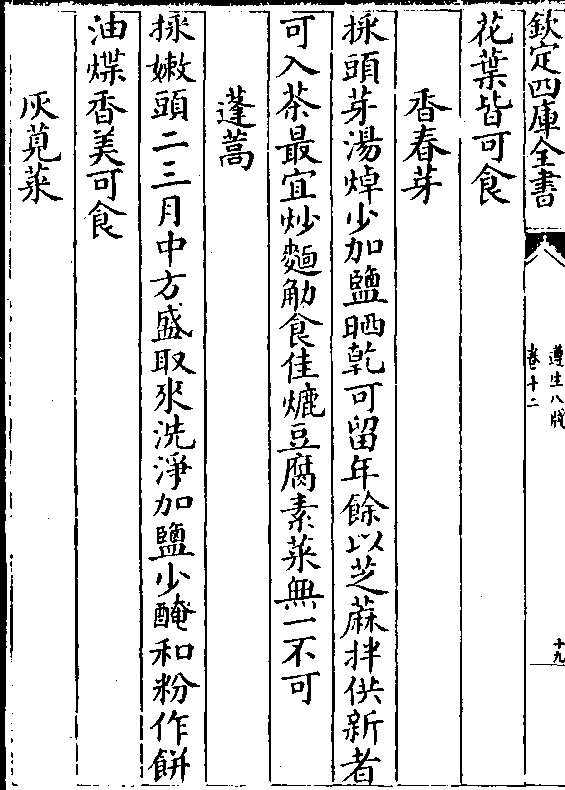 欽定四庫全書
遵生八牋
卷十二
十九
花葉皆可食
香春芽
採頭芽湯焯少加鹽晒乾可留年餘以芝蔴拌供新者
可入茶最宜炒麵觔食佳爊豆腐素菜無一不可
蓬蒿
採嫩頭二三月中方盛取來洗淨加鹽少醃和粉作餅
油煠香美可食
灰莧菜